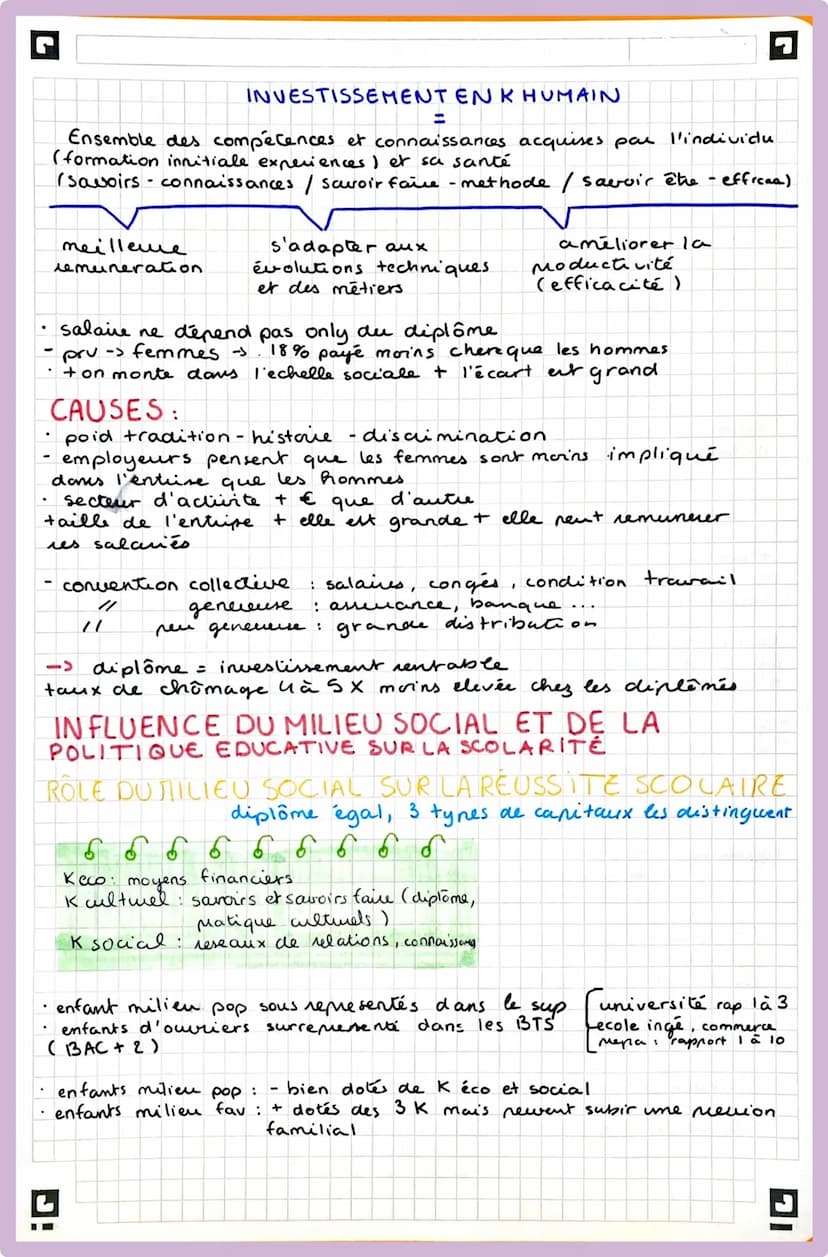 INVESTISSEMENT EN K HUMAIN
=
Ensemble des compétences et connaissances acquises par l'individu
(formation innitiale experiences) et sa santé
(savoirs - connaissances / savoir faire - methode / savoir être - efficaa)
meilleure
remuneration
s'adapter aux
évolutions techniques
et des métiers
améliorer la
productivité
(efficacité)
· salaire ne dépend pas only du diplôme
- prv -> femmes -> . 18% payé moins chere que les hommes
· + on monte dans l'echelle sociale + l'écart est grand
CAUSES :
· poid tradition - histoire - discrimination
- employeurs pensent que les femmes sont moins impliqué
dans l'entrise que les hommes
· secteur d'activite + € que d'autre
taille de l'entripe + elle est grande + elle peut remunerer
ses salariés
- convention collective : salaires, congés, condition travail
// genereuse : assurance, banque ...
// peu genereuse : grande distribution
-> diplôme = investissement rentable
taux de chômage 4 à 5 X moins elevée chez les diplômés
INFLUENCE DU MILIEU SOCIAL ET DE LA
POLITIQUE EDUCATIVE SUR LA SCOLARITÉ
RÔLE DU MILIEU SOCIAL SUR LA RÉUSSITE SCOLAIRE
diplôme égal, 3 types de capitaux les distinguent
K eco : moyens financiers
K culturel : savoirs et savoirs faire (diplôme,
pratique culturels)
K social : reseaux de relations, connaissanc
· enfant milieu pop sous representés dans le sup
· enfants d'ouvriers surrepresenté dans les BTS
(BAC + 2)
université rap 1 à 3
ecole ingé, commerce
prepa : rapport 1 à 10
· enfants milieu pop : - bien dotés de K éco et social
· enfants milieu fav : + dotés des 3 K mais peuvent subir une pression
familial